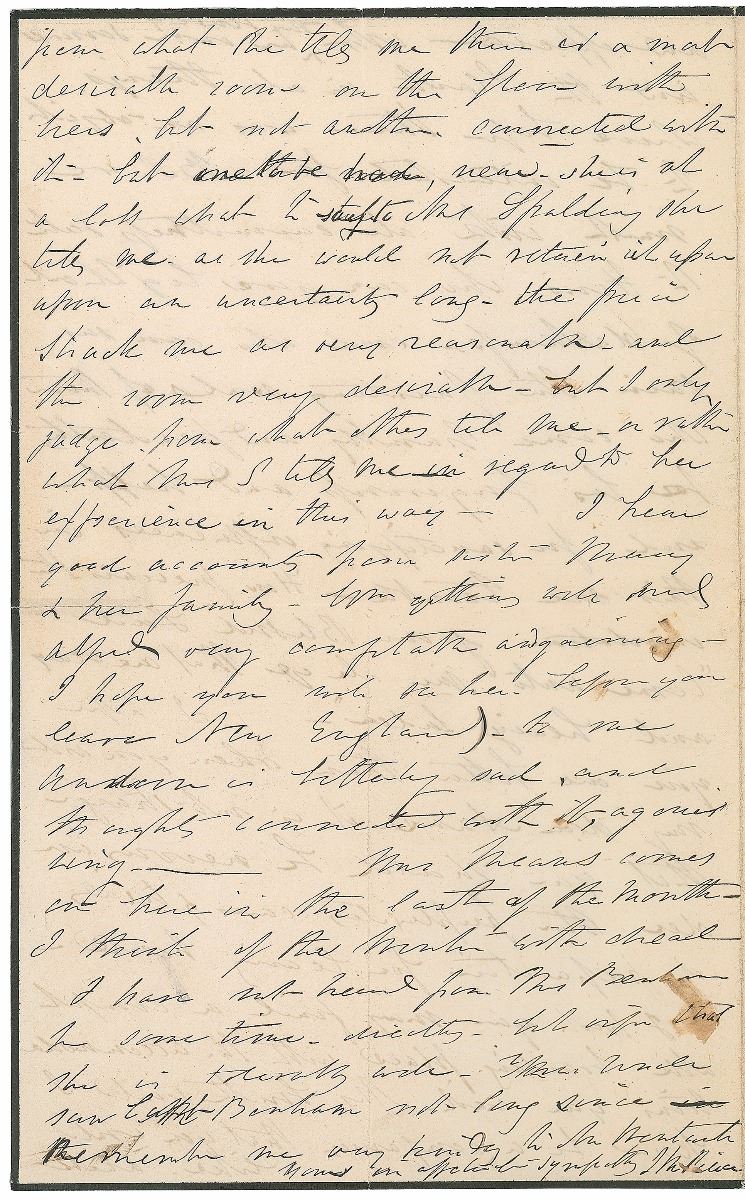 from what she tells me there is a most
desirable room on the floor with
hers, but not another connected with
it - but one to be had, near - she is at
a loss what to say to Mrs Spalding she
tells me as she would not retain it upon
upon an uncertainty long - the price
struck me as very reasonable - and
the room very desirable - but I only
judge from what others tell me - or rather
what Mrs S tells me in regard to her
experience in this way - I hear
good accounts from sister Mary
& her family - getting well and
Alfred very comfortable
I hope you will see her before you
leave New England) - to me
Andover is bitterly sad, and
thoughts connected with it, agoniz
zing - Mrs Means comes
on here in the last of the month -
I think of the winter with dread
I have not heard from Mrs Benham
for some time - directly - but that
she is tolerably well - Your Uncle
saw Capt Benham not long since in
Remember me very kindly to Mr Wentworth
Yours in affectionate sympathy J M Pierce